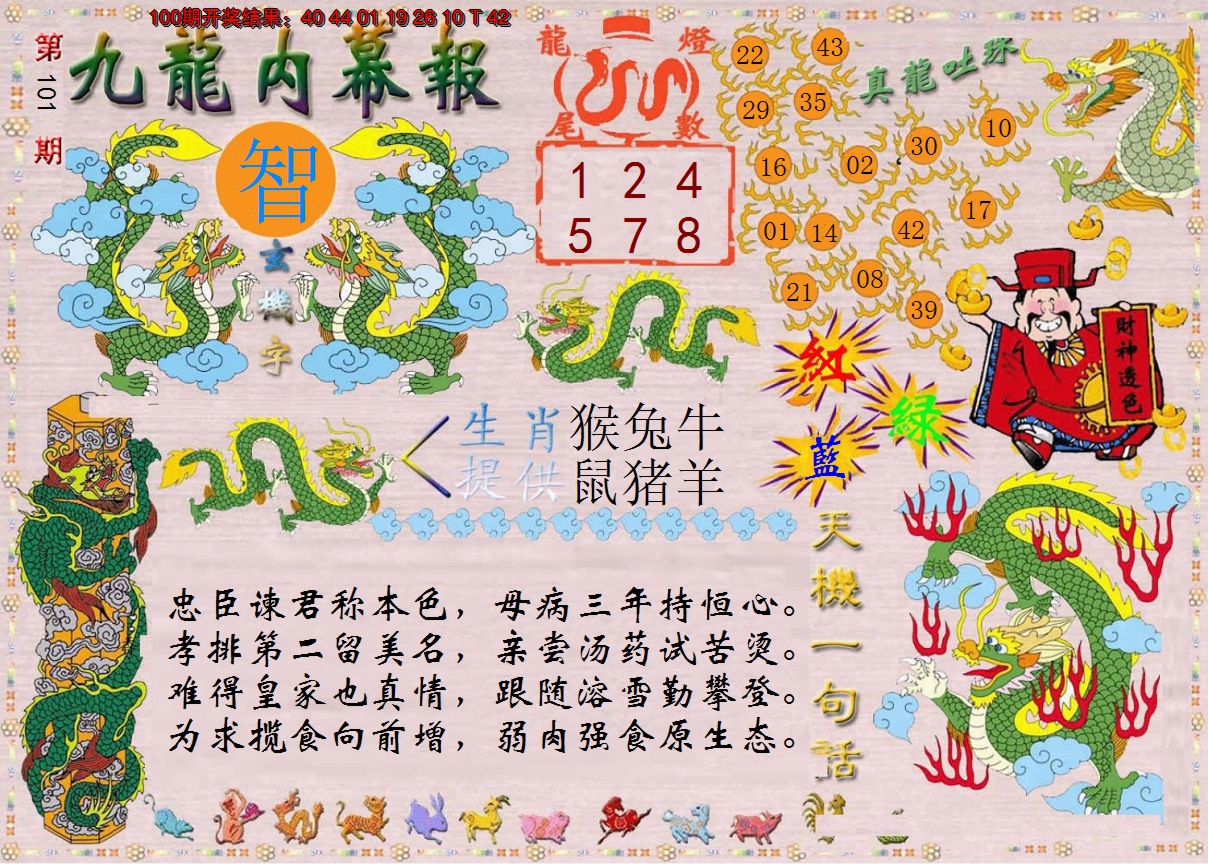 100期开奖结果：40 44 01 19 26 10 T 42
第101期
九龍内幕報
智
玄機字
龍燈
尾數
1 2 4
5 7 8
真龍吐珠
22 43
29 35
16 02 30 10
01 14 42 17
21 08 39
財神透色
紅
綠
藍
生肖 猴兔牛
提供 鼠猪羊
天機一句話
忠臣谏君称本色，母病三年持恒心。
孝排第二留美名，亲尝汤药试苦烫。
难得皇家也真情，跟随溶雪勤攀登。
为求揽食向前增，弱肉强食原生态。